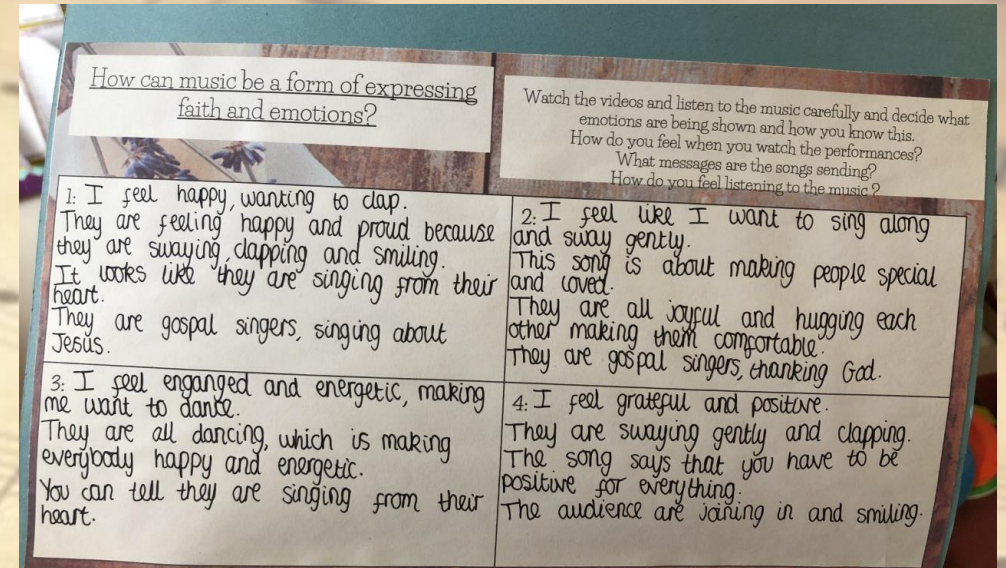 How can music be a form of expressing
faith and emotions?
Watch the videos and listen to the music carefully and decide what
emotions are being shown and how you know this.
How do you feel when you watch the performances?
What messages are the songs sending?
How do you feel listening to the music?
1: I feel happy, wanting to clap.
They are feeling happy and proud because
they are swaying, clapping and smiling.
It looks like they are singing from their
heart.
They are gospal singers, singing about
Jesus.
2: I feel like I want to sing along
and sway gently.
This song is about making people special
and loved.
They are all joyful and hugging each
other making them comfortable.
They are gospal singers, thanking God.
3: I feel enganged and energetic, making
me want to dance.
They are all dancing, which is making
everybody happy and energetic.
You can tell they are singing from their
heart.
4: I feel grateful and positive.
They are swaying gently and clapping.
The song says that you have to be
positive for everything.
The audience are joining in and smiling.